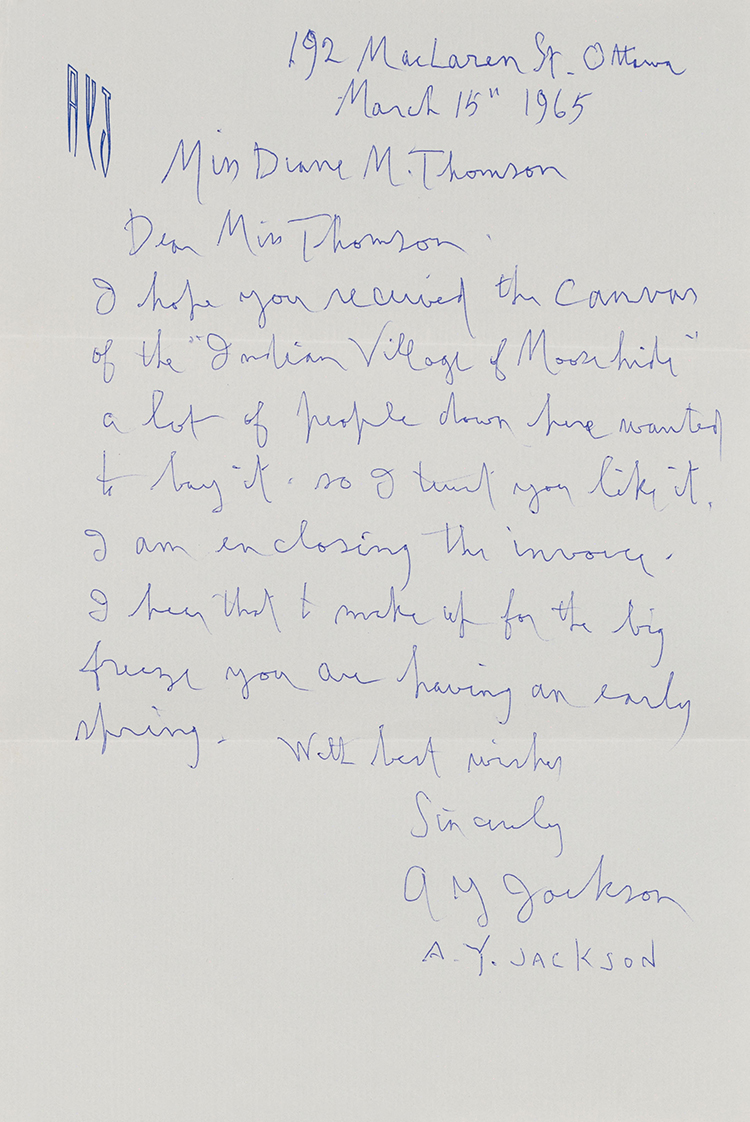 192 MacLaren St. Ottawa
March 15" 1965
AYJ
Miss Diane M. Thomson
Dear Miss Thomson.
I hope you received the canvas
of the "Indian Village of Moosehide"
a lot of people down here wanted
to buy it. so I trust you like it.
I am enclosing the invoice.
I hear that to make up for the big
freeze you are having an early
spring. With best wishes
Sincerely
A Y Jackson
A. Y. JACKSON